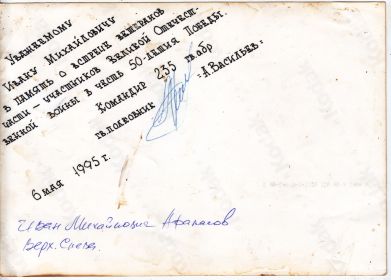 Уважаемому
Ивану Михайловичу
в память о встрече ветеранов
части – участников Великой Отечест-
венной войны в честь 50-летия Победы.
Командир 235 гв абр
гв. полковник
-А. Васильев-
6 мая 1995 г.
Иван Михайлович Афанасов
Верх.